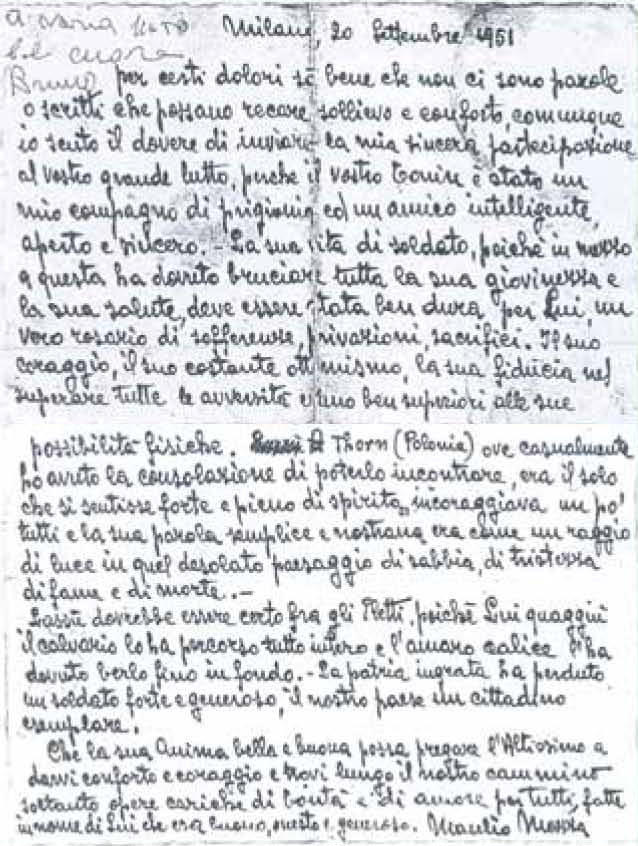 Milano, 20 Settembre 1951
Bruno
per certi dolori so bene che non ci sono parole
o scritti che possano recare sollievo e conforto, comunque
io sento il dovere di inviare la mia sincera partecipazione
al vostro grande lutto, perche il vostro è stato un
mio compagno di prigionia ed un amico intelligente,
aperto e sincero. - La sua vita di soldato, poichè in mezzo
a questa ha dovuto bruciare tutta la sua giovinezza e
la sua salute, deve essere stata ben dura per Lui, un
vero rosario di sofferenze, privazioni, sacrifici. Il suo
coraggio, il suo costante ottimismo, la sua fiducia nel
superare tutte le avversità erano ben superiori alle sue
possibilità fisiche. Thorn (Polonia) ove casualmente
ho avuto la consolazione di poterlo incontrare, era il solo
che si sentisse forte e pieno di spirito, incoraggiava un po'
tutti e la sua parola semplice e nostrana era come un raggio
di luce in quel desolato paesaggio di sabbia, di tristezza
di fame e di morte. -
Lassù dovrebbe essere certo fra gli Eletti, poichè Lui quaggiù
il calvario lo ha percorso tutto intero e l'amaro calice l'ha
dovuto berlo fino in fondo. - La patria ingrata ha perduto
un soldato forte e generoso, il nostro paese un cittadino
esemplare.
Che la sua Anima bella e buona possa pregare l'Altissimo a
darvi conforto e coraggio e trovi lungo il nostro cammino
soltanto opere cariche di bontà e di amore per tutti, fatte
in nome di Lui che era buono, onesto e generoso. Manlio